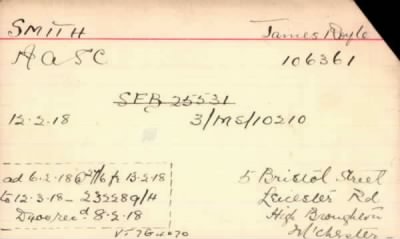 SMITH James Royle
RASC 106361
SEB 25531
12-2-18 3/MS/10210
ad 6-2-18 27/6 fr 13-2-18
to 12-3-18 - 232289/H
D400 recd 8-2-18
5 Bristol Street
Leicester Rd.
High Broughton
M'chester